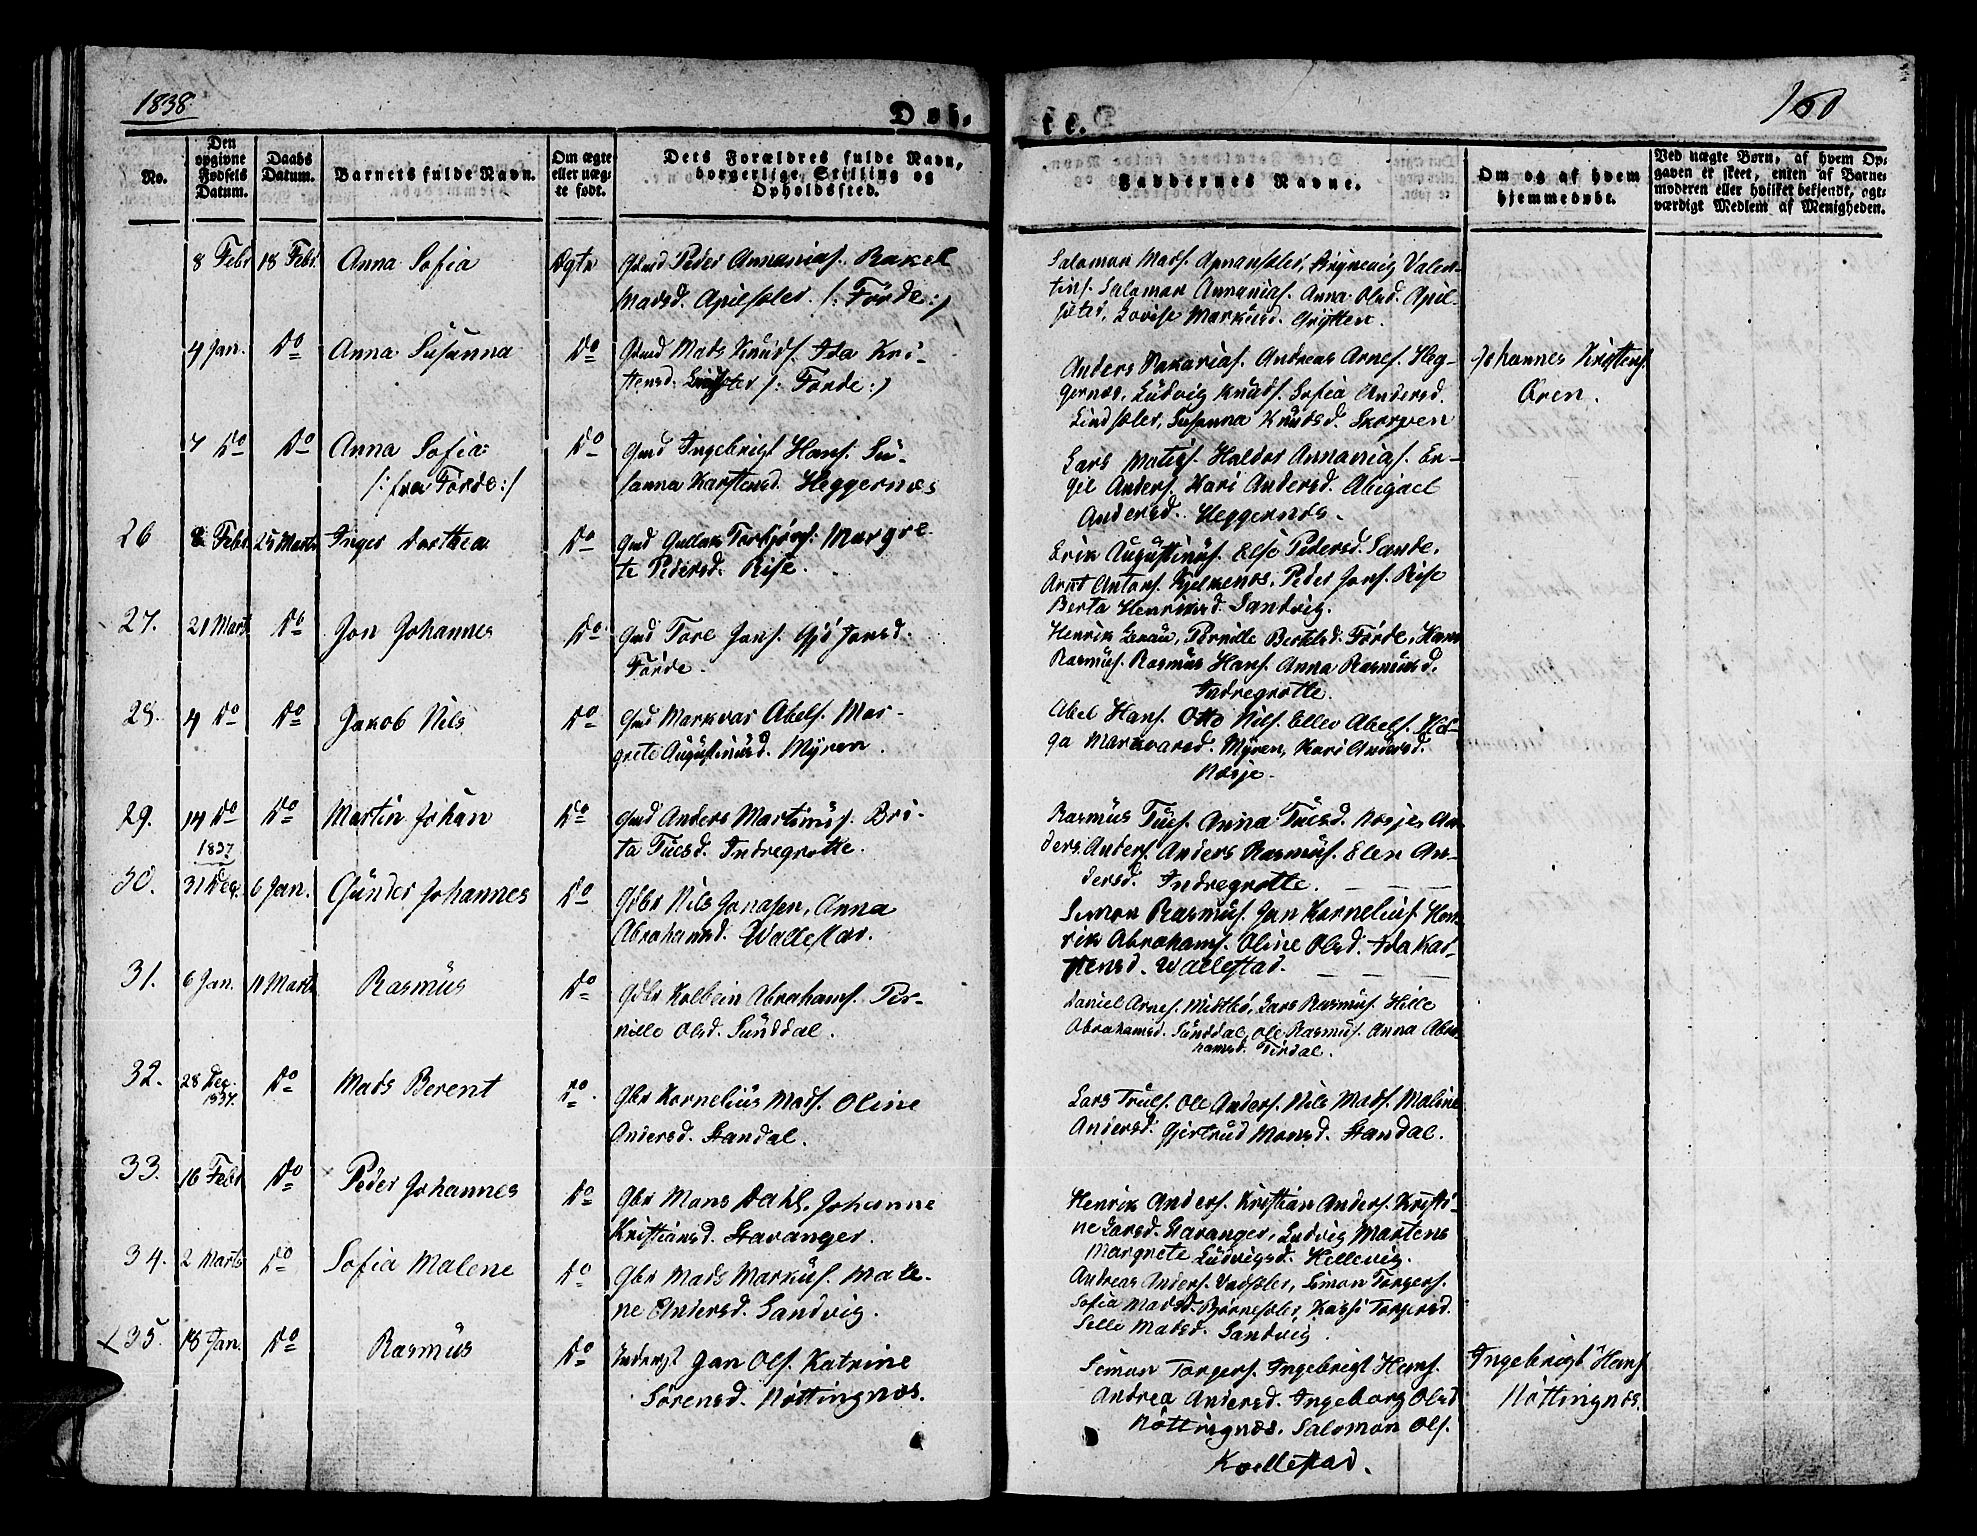 1838
Døb-
te.
160
No.
Den opgivne Fødsels Datum.
Daabs Datum.
Barnets fulde Navn.
Om ægte eller uæg-
te født.
Dets Forældres fulde Navn,
borgerlige Stilling og
Opholdssted.
Faddernes Navne.
Om og af hvem
hjemmedøbt.
Ved uægte Børn, af hvem Op-
gaven er skeet, enten af Barne-
moderen eller hvilket bekjendt, agt-
værdigt Medlem af Menigheden.
8 Febr 18 Febr. Anna Sofia Ægte Gmd Peder Annanias. Rakel
Madsd. Apilsæter /: Förde :/
Salomon Mads. Annanias. Valen-
tins. Salomon Annanias. Anna Olsd. Apil-
sæter, Lovise Markusd. Grytten.
4 Jan. do Anna Susanna do Gmd Mads Knuds. Ida Kri-
stensd. /: Förde :/
Anders Sakarias. Andreas Arnes. Heg-
gernæs, Ludvig Knuds. Sofia Andersd.
Lindsæter, Susanna Knudsd. Skorpen
Johannes Kristens.
Øren.
7 do do Anna Sofia do Gmd Ingebrigt Hans. Su-
/: fra Förde :/
sanna Karstensd. Heggernæs
Lars Matis. Haldor Annanias. En-
gel Anders. Kari Andersd. Abigael
Andersd. Heggernæs.
26 8 Febr 25 Marts Inger Dorthea do Gmd Gullak Torbjörns. Margre-
te Pedersd. Rise.
Erik Augustinus. Else Pedersd. Sande,
Arnt Antons. Kjelkenæs, Peder Jons. Rise
Berta Henriksd. Sandvig.
27. 21 Marts do Jon Johannes do Gmd Tore Jons. Gjö Jonsd.
Förde.
Henrik Zenau, Pernille Bertelsd. Förde, Hans
Rasmus. Rasmus Hans. Anna Rasmusd.
Indregrotte.
28. 4 do do Jakob Nils do Gmd Markvar Abels. Mar-
grete Augustinusd. Myren.
Abel Hans. Otto Nils. Ellev Abels. Hel-
ga Markvarsd. Myren, Kari Andersd.
Næsje.
29. 14 do do Martin Johan do Gmd Anders Martinus. Bri-
ta Tuesd. Indregrotte.
Rasmus Tues. Anna Tuesd. Næsje, An-
ders Anders. Anders Rasmus. Elen An-
dersd. Indregrotte.
1837
30. 31 Dec. 6 Jan. Gunder Johannes do Gbr Nils Jonasen, Anna
Abrahamsd. Wallestad.
Simon Rasmus. Jan Kornelius. Hen-
rik Abrahams. Oline Olsd. Ida Kar-
stensd. Wallestad.
31. 6 Jan. 11 Marts Rasmus do Gbr Kolbein Abrahams. Per-
nille Olsd. Sunddal.
Daniel Arnes. Midtbö, Lars Rasmus. Hille
Abrahamsd. Sunddal, Ole Rasmus. Anna Abra-
hamsd. Tirdal.
32. 28 Dec. 1837. do Mads Berent do. Gbr Kornelius Mads. Oline
Andersd. Standal.
Lars Truls. Ole Anders. Nils Mads. Maline
Andersd. Gjertrud Monsd. Standal.
33. 16 Febr do Peder Johannes do Gbr Mons Dahl, Johanne
Kristiansd. Stavanger.
Henrik Anders. Kristian Anders. Kristi-
ne Larsd. Stavanger, Ludvig Martens
Margrete Ludvigsd. Hellevig.
34. 2 Marts do Sofia Malene do Gbr Mads Markus. Male-
ne Andersd. Sandvig.
Andreas Anders. Vadsæter, Simon Torgers.
Sofia Madsd. Björnesæter, Kasse Torgersd.
Sille Madsd. Sandvig.
35. 18 Jan. do Rasmus do Inderst Jan Ols. Katrine
Sörensd. Nöttingnæs.
Simon Torgers. Ingebrigt Hans.
Andrea Andersd. Ingeborg Olsd
Nöttingnæs, Salomon Ols.
Kvellestad.
Ingebrigt Hans.
Nöttingnæs.